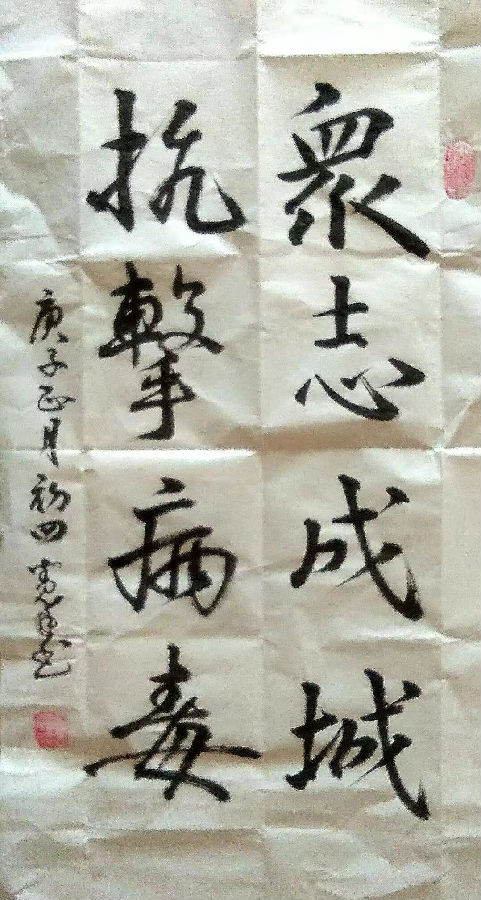 眾志成城
抗擊病毒
庚子正月初四